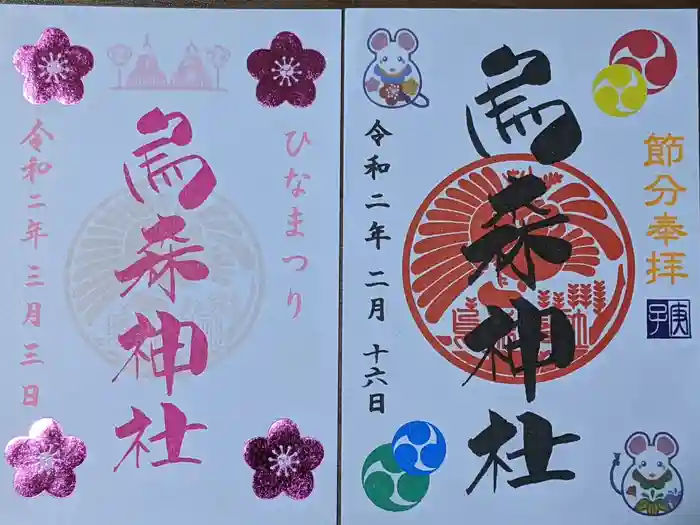 ひなまつり
烏森神社
令和二年 三月三日
節分奉拝
庚子
烏森神社
令和二年 二月 十六日